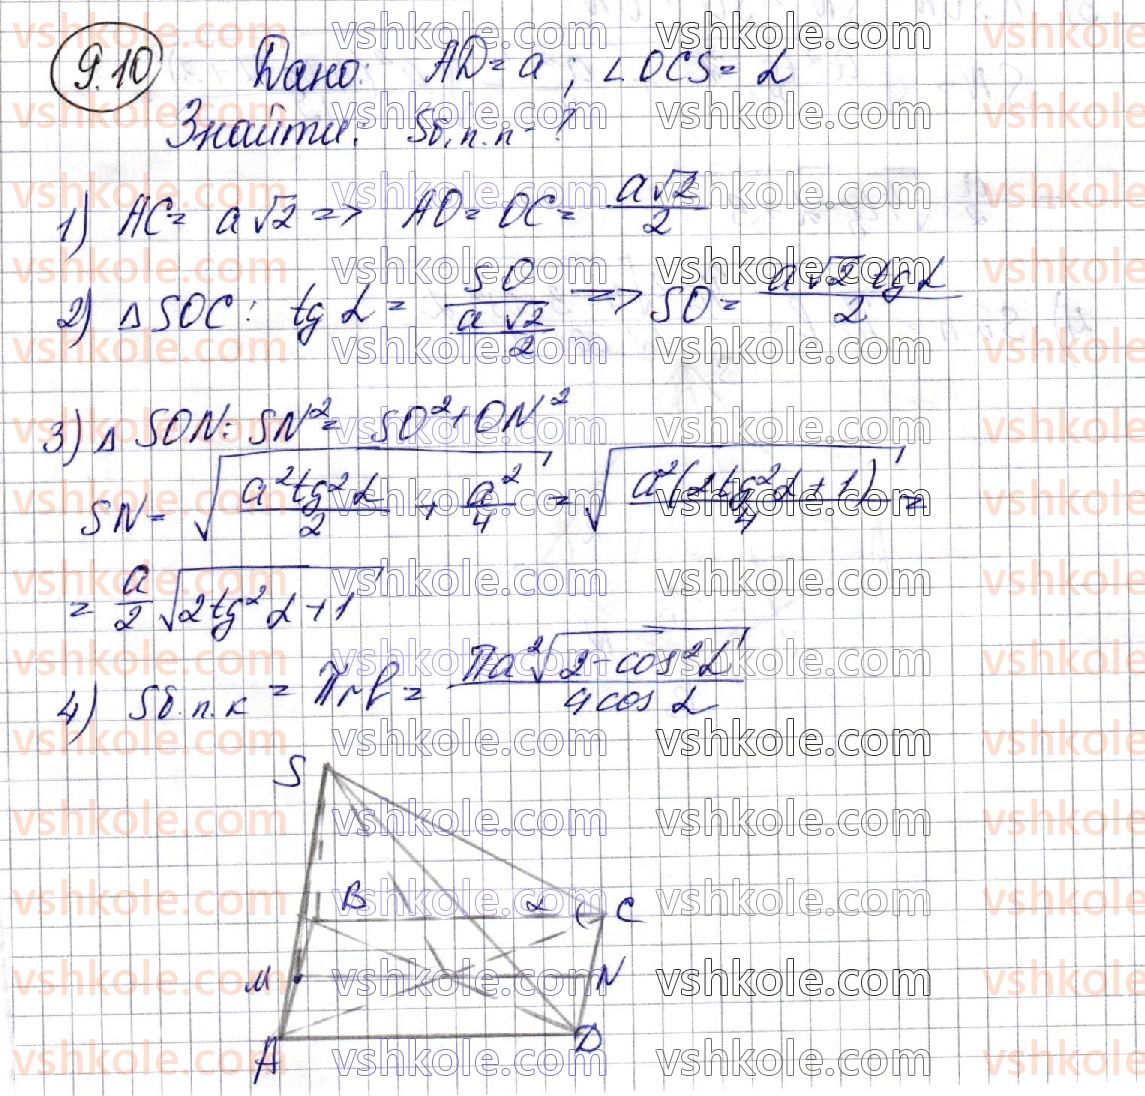 9.10 Дано: AD = a; ∠OCS = α
Знайти: Sб.п.п - ?
1) AC = a√2 => AO = OC = a√2/2
2) △SOC: tg α = SO/(a√2/2) => SO = a√2 tg α/2
3) △SON: SN² = SO² + ON²
SN = √(a²tg²α/2 + a²/4) = √(a²(2tg²α+1)/4) =
= a/2 √(2tg²α+1)
4) Sб.п.к = πrl = πa²√(2-cos²α)/4cos α
S
B α C
M N
A D
vshkole.com